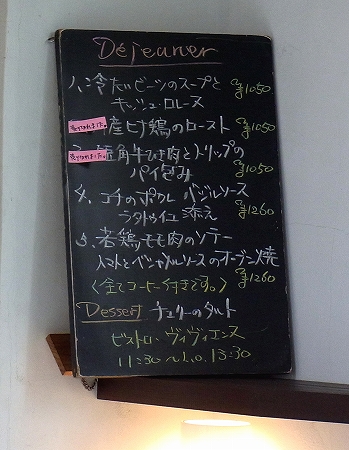 Déjeuner
1、冷たいビーツのスープと
キッシュ・ロレーヌ ¥1050
売り切れました。
産ヒナ鶏のロースト ¥1050
売り切れました。
短角牛ひき肉とトリップの
パイ包み ¥1050
4、コチのポワレ バジルソース
ラタトゥイユ添え ¥1260
5、若鶏モモ肉のソテー
トマトとベシャメルソースのオーブン焼 ¥1260
〈全てコーヒー付きです。〉
Dessert チェリーのタルト
ビストロ・ヴィヴィエンヌ
11:30〜L.o. 13:30